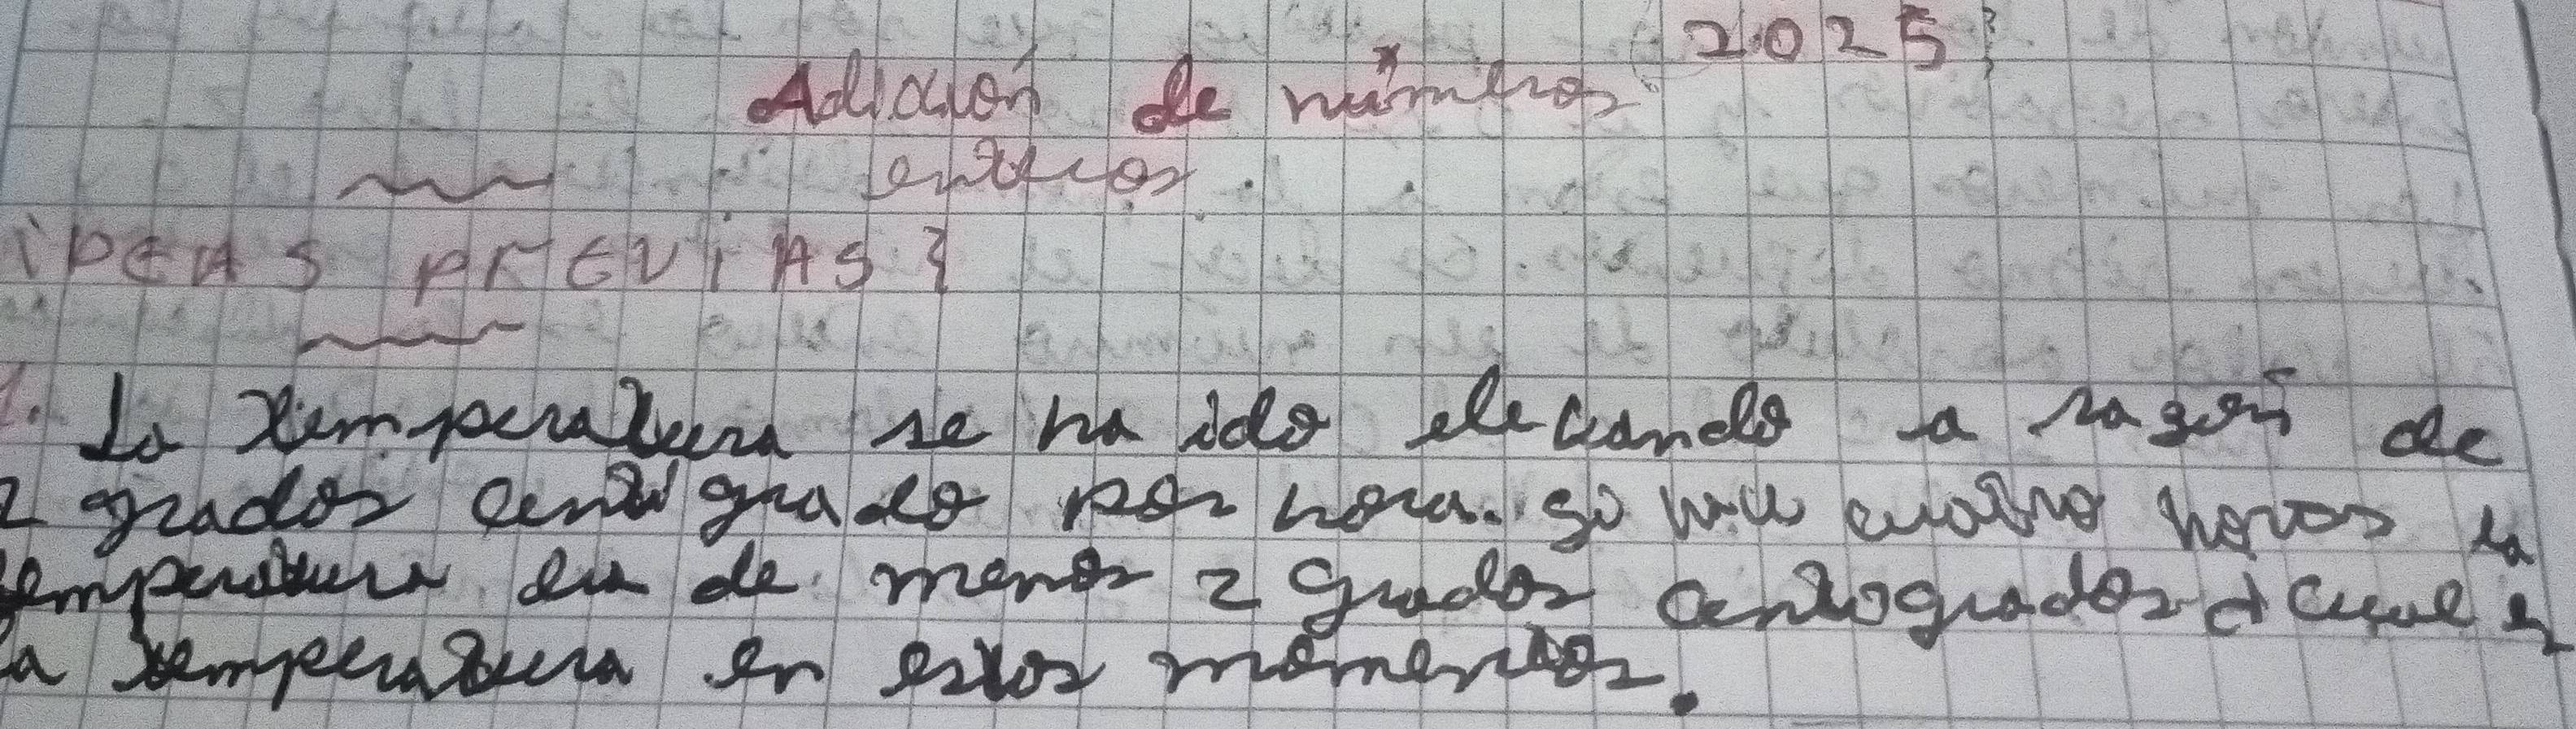 2025}
Adición de números
enteros.
iDEAS PrEViAS}
1. La temperatura se ha ido elevando a razón de
2 grados centígrado por hora. si hace cuatro horas la
temperatura era de menos 2 grados centogrados d cual es
la temperatura en estos momentos.